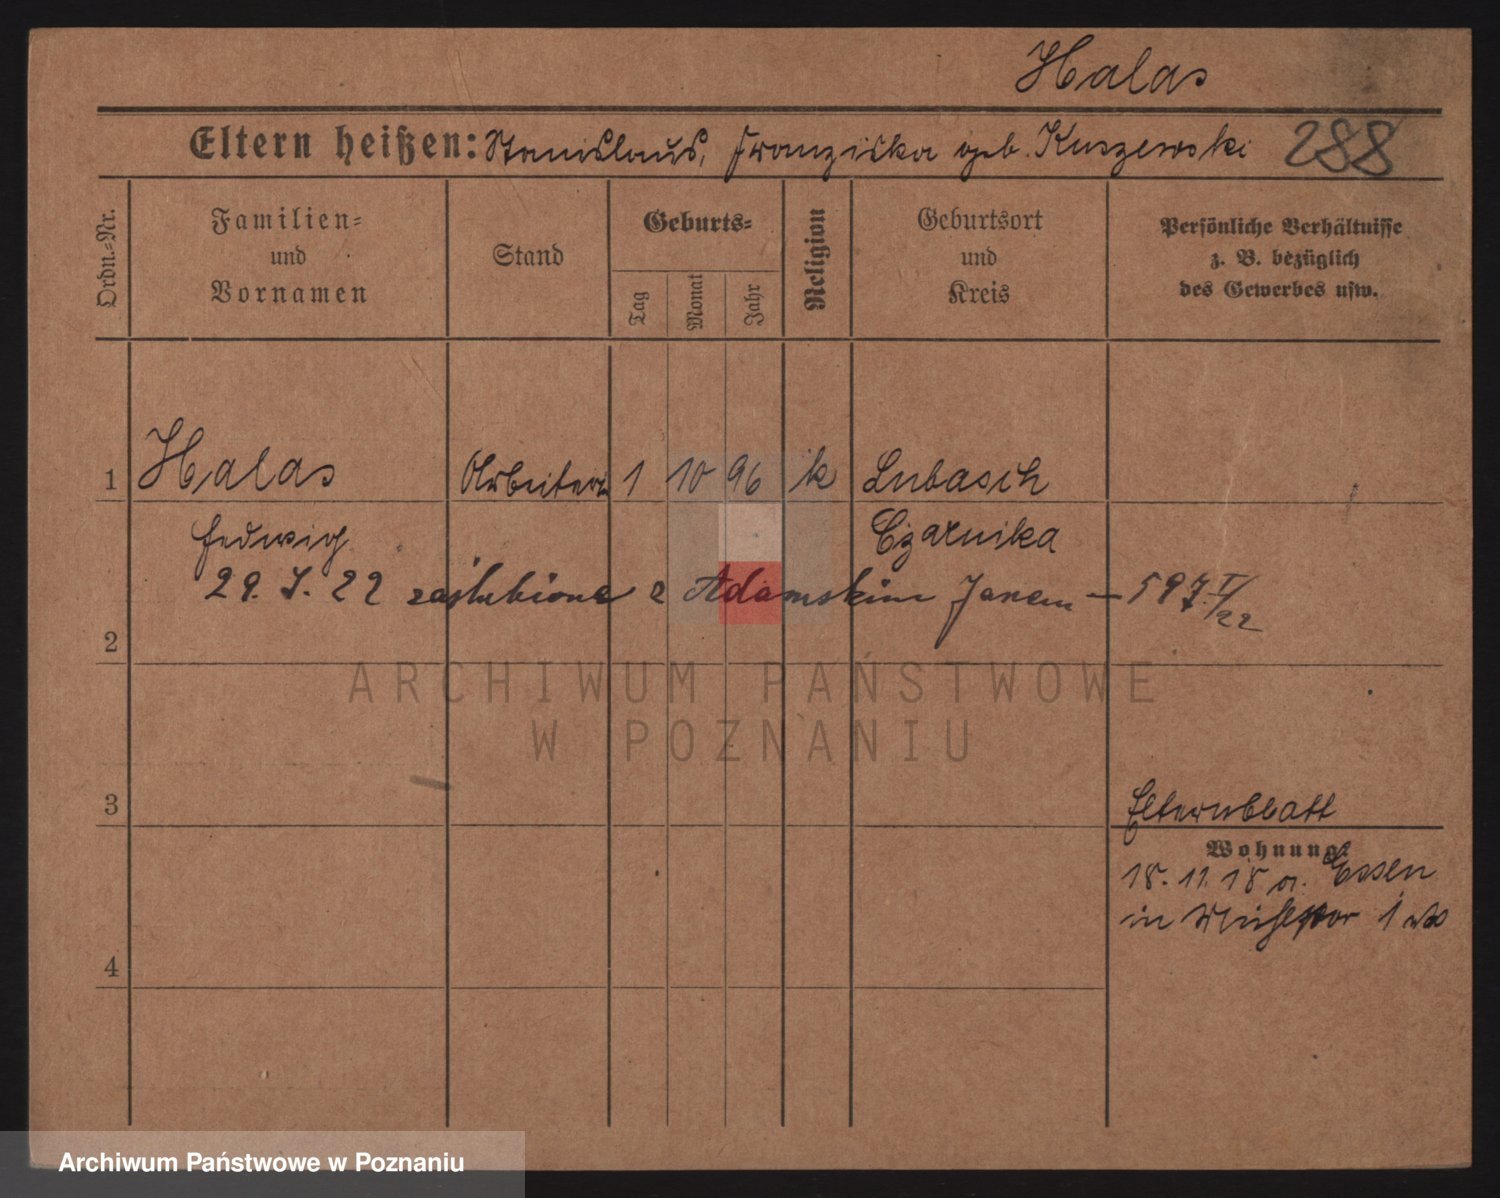 Halas
Eltern heißen: Stanislaus, Franziska geb. Kuszewski 288
Ordn.-Nr.
Familien- und Vornamen
Stand
Geburts-
Tag
Monat
Jahr
Religion
Geburtsort und Kreis
Persönliche Verhältnisse z. B. bezüglich des Gewerbes usw.
1 Halas Arbeiterin 1 10 96 k Lubasch
Hedwig Czarnika
29. I. 22 zaślubiona z Adamskim Janem — 597 I/22
2
ARCHIWUM PAŃSTWOWE
W POZNANIU
3 Elternblatt
Wohnung:
18. 11. 18 a. Essen
in 1
4
Archiwum Państwowe w Poznaniu